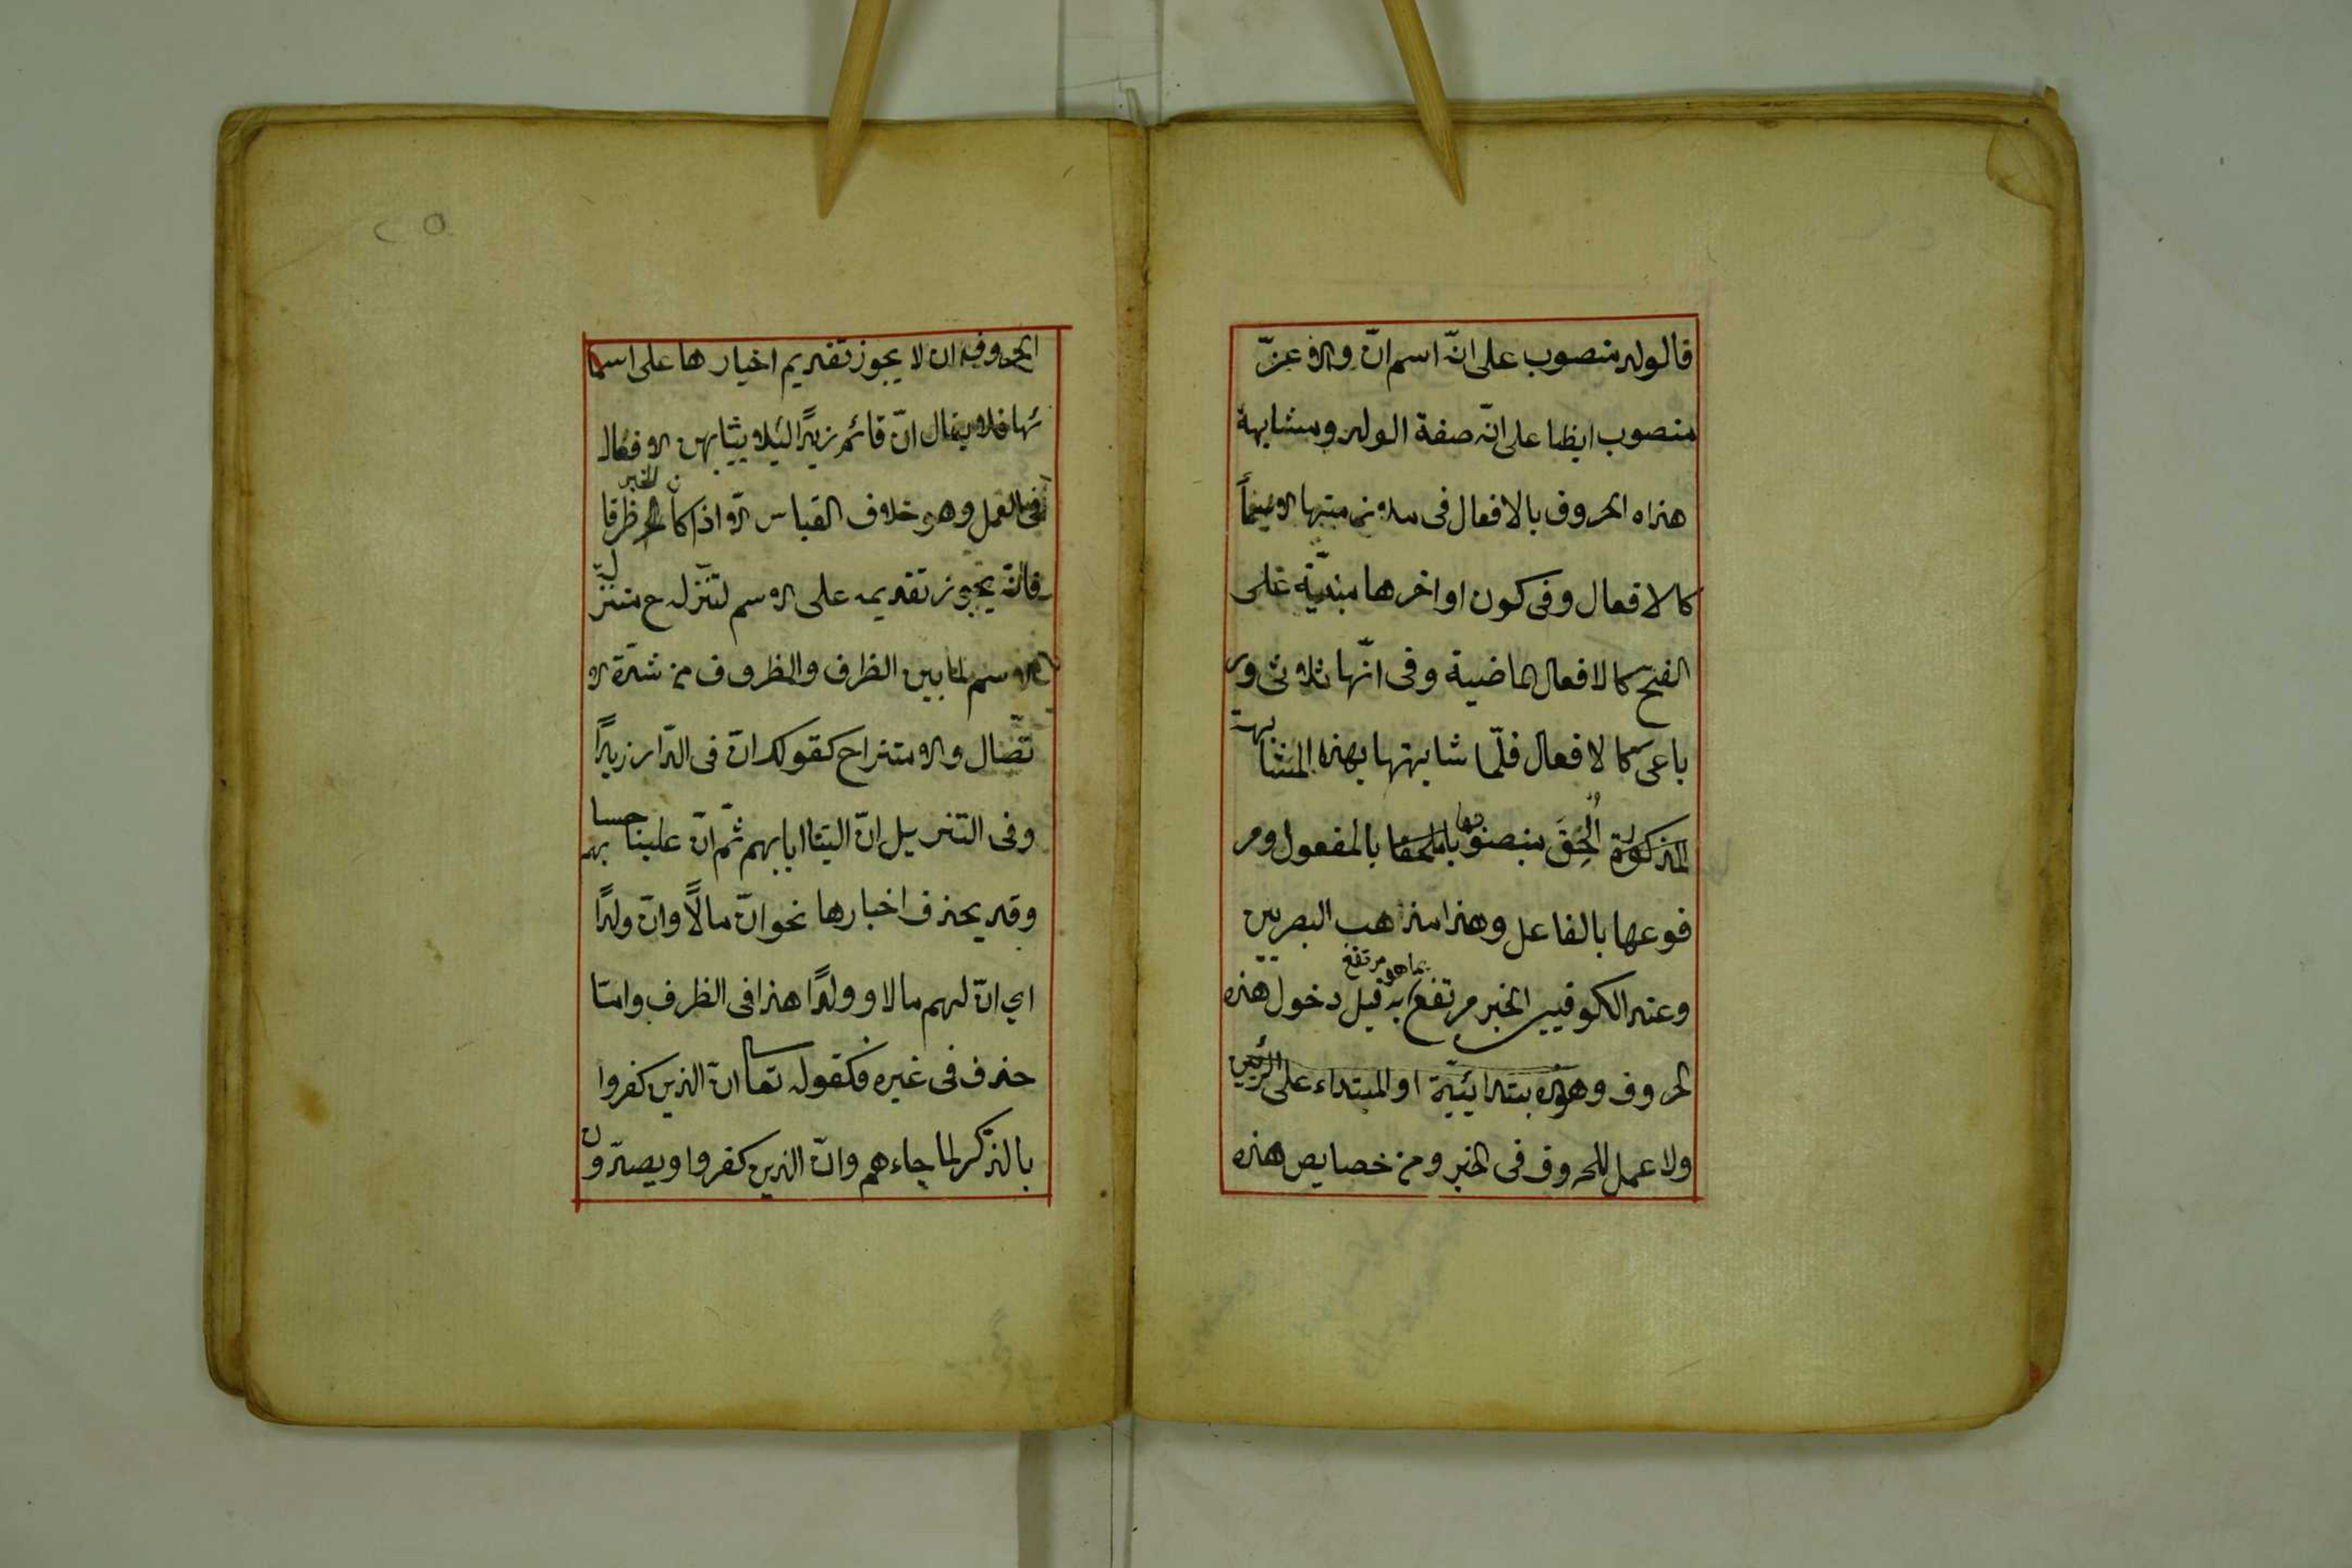 فالولد منصوب على انّه اسم انّ والاعزّ
منصوب ايظا على انّه صفة الولد ومشابهة
هذاه الحروف بالافعال فى ملازمتها الاسماً
كالافعال وفى كون اواخرها مبنيّة على
الفتح كالافعال الماضية وفى انّها ثلاثى ور
باعى كالافعال فلمّا شابهتها بهذه المشابهة
المذكورة اُلحِقَ منصوبها بالمفعول ومر
فوعها بالفاعل وهذا مذاهب البصريين
وعند الكوفيين الخبر مرتفع بما هو مرتفع به قبل دخول هذه
الحروف وهو الابتدائيّة او المبتداء على الرئيين
ولا عمل للحروف فى الخبر ومن خصايص هذه
الحروف ان لا يجوز تقديم اخبارها على اسما
ئها فلا يقال انّ قائم زيدًا ليئلا يشابهن الافعال
فى العمل وهو خلاف القياس الاّ اذا كان الخبر ظرفا
فانّه يجوز تقديمه على الاسم لتنزله ح منزلة
الاسم لما بين الظرف والمظروف من شدّة الا
تّصال والامتزاج كقولك انّ فى الدّار زيدًا
وفى التنزيل انّ الينا ايابهم ثمّ انّ علينا حسابهم
وقد يحذف اخبارها نحو انّ مالًا وانّ ولدًا
اي انّ لهم مالا وولدًا هذا فى الظرف وامّا
حذف فى غيره فكقوله تعا انّ الذين كفروا
بالذّكر لما جاءهم وانّ الذين كفروا ويصدّون
٢٥